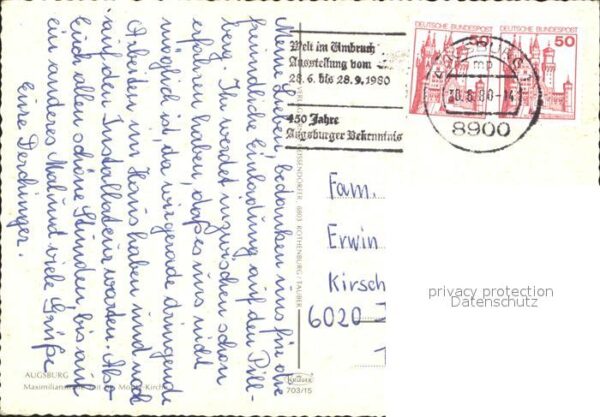 Meine Lieben, bedanken uns für die
freundliche Einladung auf den Pill-
berg. Ihr werdet inzwischen schon
erfahren haben, daß es uns nicht
möglich ist da wir gerade dringende
Arbeiten im Haus haben und noch
auf den Installateur warten. Also
Euch allen schöne Stunden bis auf
ein anderes Mal und viele Grüße
Eure Derchinger.
AUGSBURG
Maximilianstraße mit Moritz-Kirche
VERLAG ROTHENBURG/TAUBER
KRÜGER
703/15
Welt im Umbruch
Ausstellung vom
28.6. bis 28.9.1980
450 Jahre
Augsburger Bekenntnis
DEUTSCHE BUNDESPOST
DEUTSCHE BUNDESPOST
50
AUGSBURG 1
mp
30.6.80-14
8900
Fam.
Erwin
Kirsch
6020
privacy protection
Datenschutz